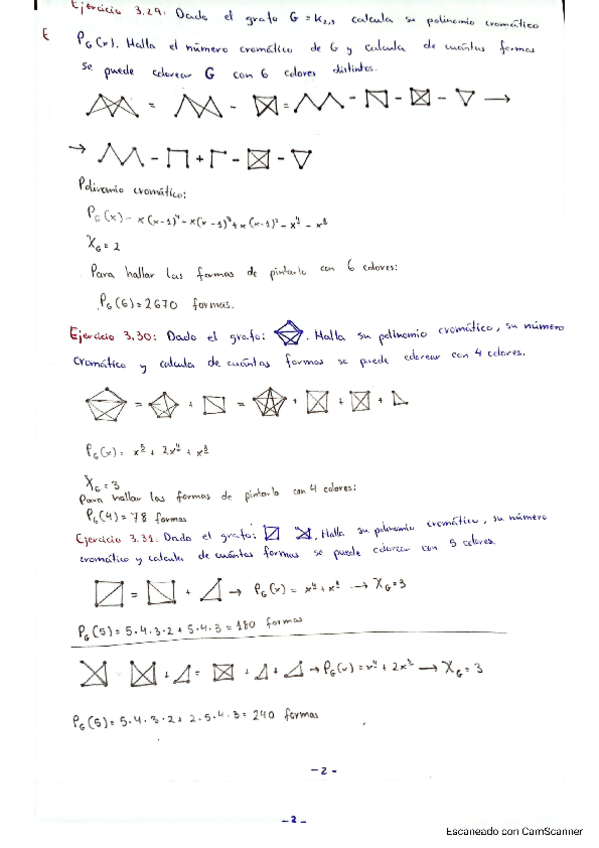 Ejercicio 3.29: Dado el grafo G = K₂,₃ calcula su polinomio cromático
E P_G(x). Halla el número cromático de G y calcula de cuántas formas
se puede colorear G con 6 colores distintos.
= - = - - - →
→ - + - -
Polinomio cromático:
P_G(x) = x(x-1)⁴ - x(x-1)³ + x(x-1)² - x⁴ - x³
χ_G = 2
Para hallar las formas de pintarlo con 6 colores:
P_G(6) = 2670 formas.
Ejercicio 3.30: Dado el grafo: . Halla su polinomio cromático, su número
cromático y calcula de cuántas formas se puede colorear con 4 colores.
= + = + + +
P_G(x) = x⁵ + 2x⁴ + x³
χ_G = 3
Para hallar las formas de pintarlo con 4 colores:
P_G(4) = 78 formas
Ejercicio 3.31: Dado el grafo: . Halla su polinomio cromático, su número
cromático y calcula de cuántas formas se puede colorear con 5 colores.
= + → P_G(x) = x⁴ + x³ → χ_G = 3
P_G(5) = 5·4·3·2 + 5·4·3 = 180 formas
+ = + + → P_G(x) = x⁴ + 2x³ → χ_G = 3
P_G(5) = 5·4·3·2 + 2·5·4·3 = 240 formas
- 2 -
- 2 -
Escaneado con CamScanner